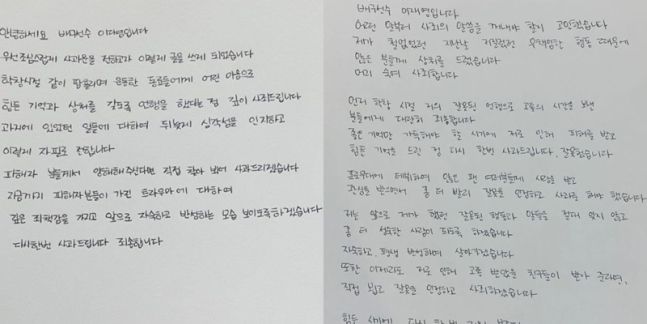 안녕하세요 배구선수 이다영입니다
우선 조심스럽게 사과문을 전하고자 이렇게 글을 쓰게 되었습니다
학창시절 같이 땀흘리며 운동한 동료들에게 어린 마음으로
힘든 기억과 상처를 갖도록 언행을 했다는 점 깊이 사죄드립니다
과거에 있었던 일들에 대하여 뒤늦게 심각성을 인지하고
이렇게 자필로 전합니다
피해자 분들께서 양해해주신다면 직접 찾아 뵈어 사과드리겠습니다
지금까지 피해자분들이 가진 트라우마에 대하여
깊은 죄책감을 가지고 앞으로 자숙하고 반성하는 모습 보이도록 하겠습니다
다시한번 사과드립니다 죄송합니다
배구선수 이재영입니다
어떤 말부터 사죄의 말씀을 꺼내야 할지 고민했습니다
제가 철없었던 지난날 저질렀던 무책임한 행동 때문에
많은 분들께 상처를 드렸습니다
머리 숙여 사죄합니다
먼저 학창 시절 저의 잘못된 언행으로 고통의 시간을 보낸
분들에게 대단히 죄송합니다
좋은 기억만 가득해야 할 시기에 저로 인해 피해를 받고
힘든 기억을 드린 점 다시 한번 사과드립니다. 잘못했습니다
프로무대에 데뷔하여 많은 팬 여러분들께 사랑을 받고
관심을 받으면서 좀 더 빨리 잘못을 인정하고 사죄를 해야 했습니다
저는 앞으로 제가 했던 잘못된 행동과 말들을 절대 잊지 않고
좀 더 성숙한 사람이 되도록 하겠습니다
자숙하고 평생 반성하며 살아가겠습니다
또한 이제라도 저로 인해 고통 받았을 친구들이 받아 준다면,
직접 뵙고 잘못을 인정하고 사죄하겠습니다
힘든 시기에 다시 한 번